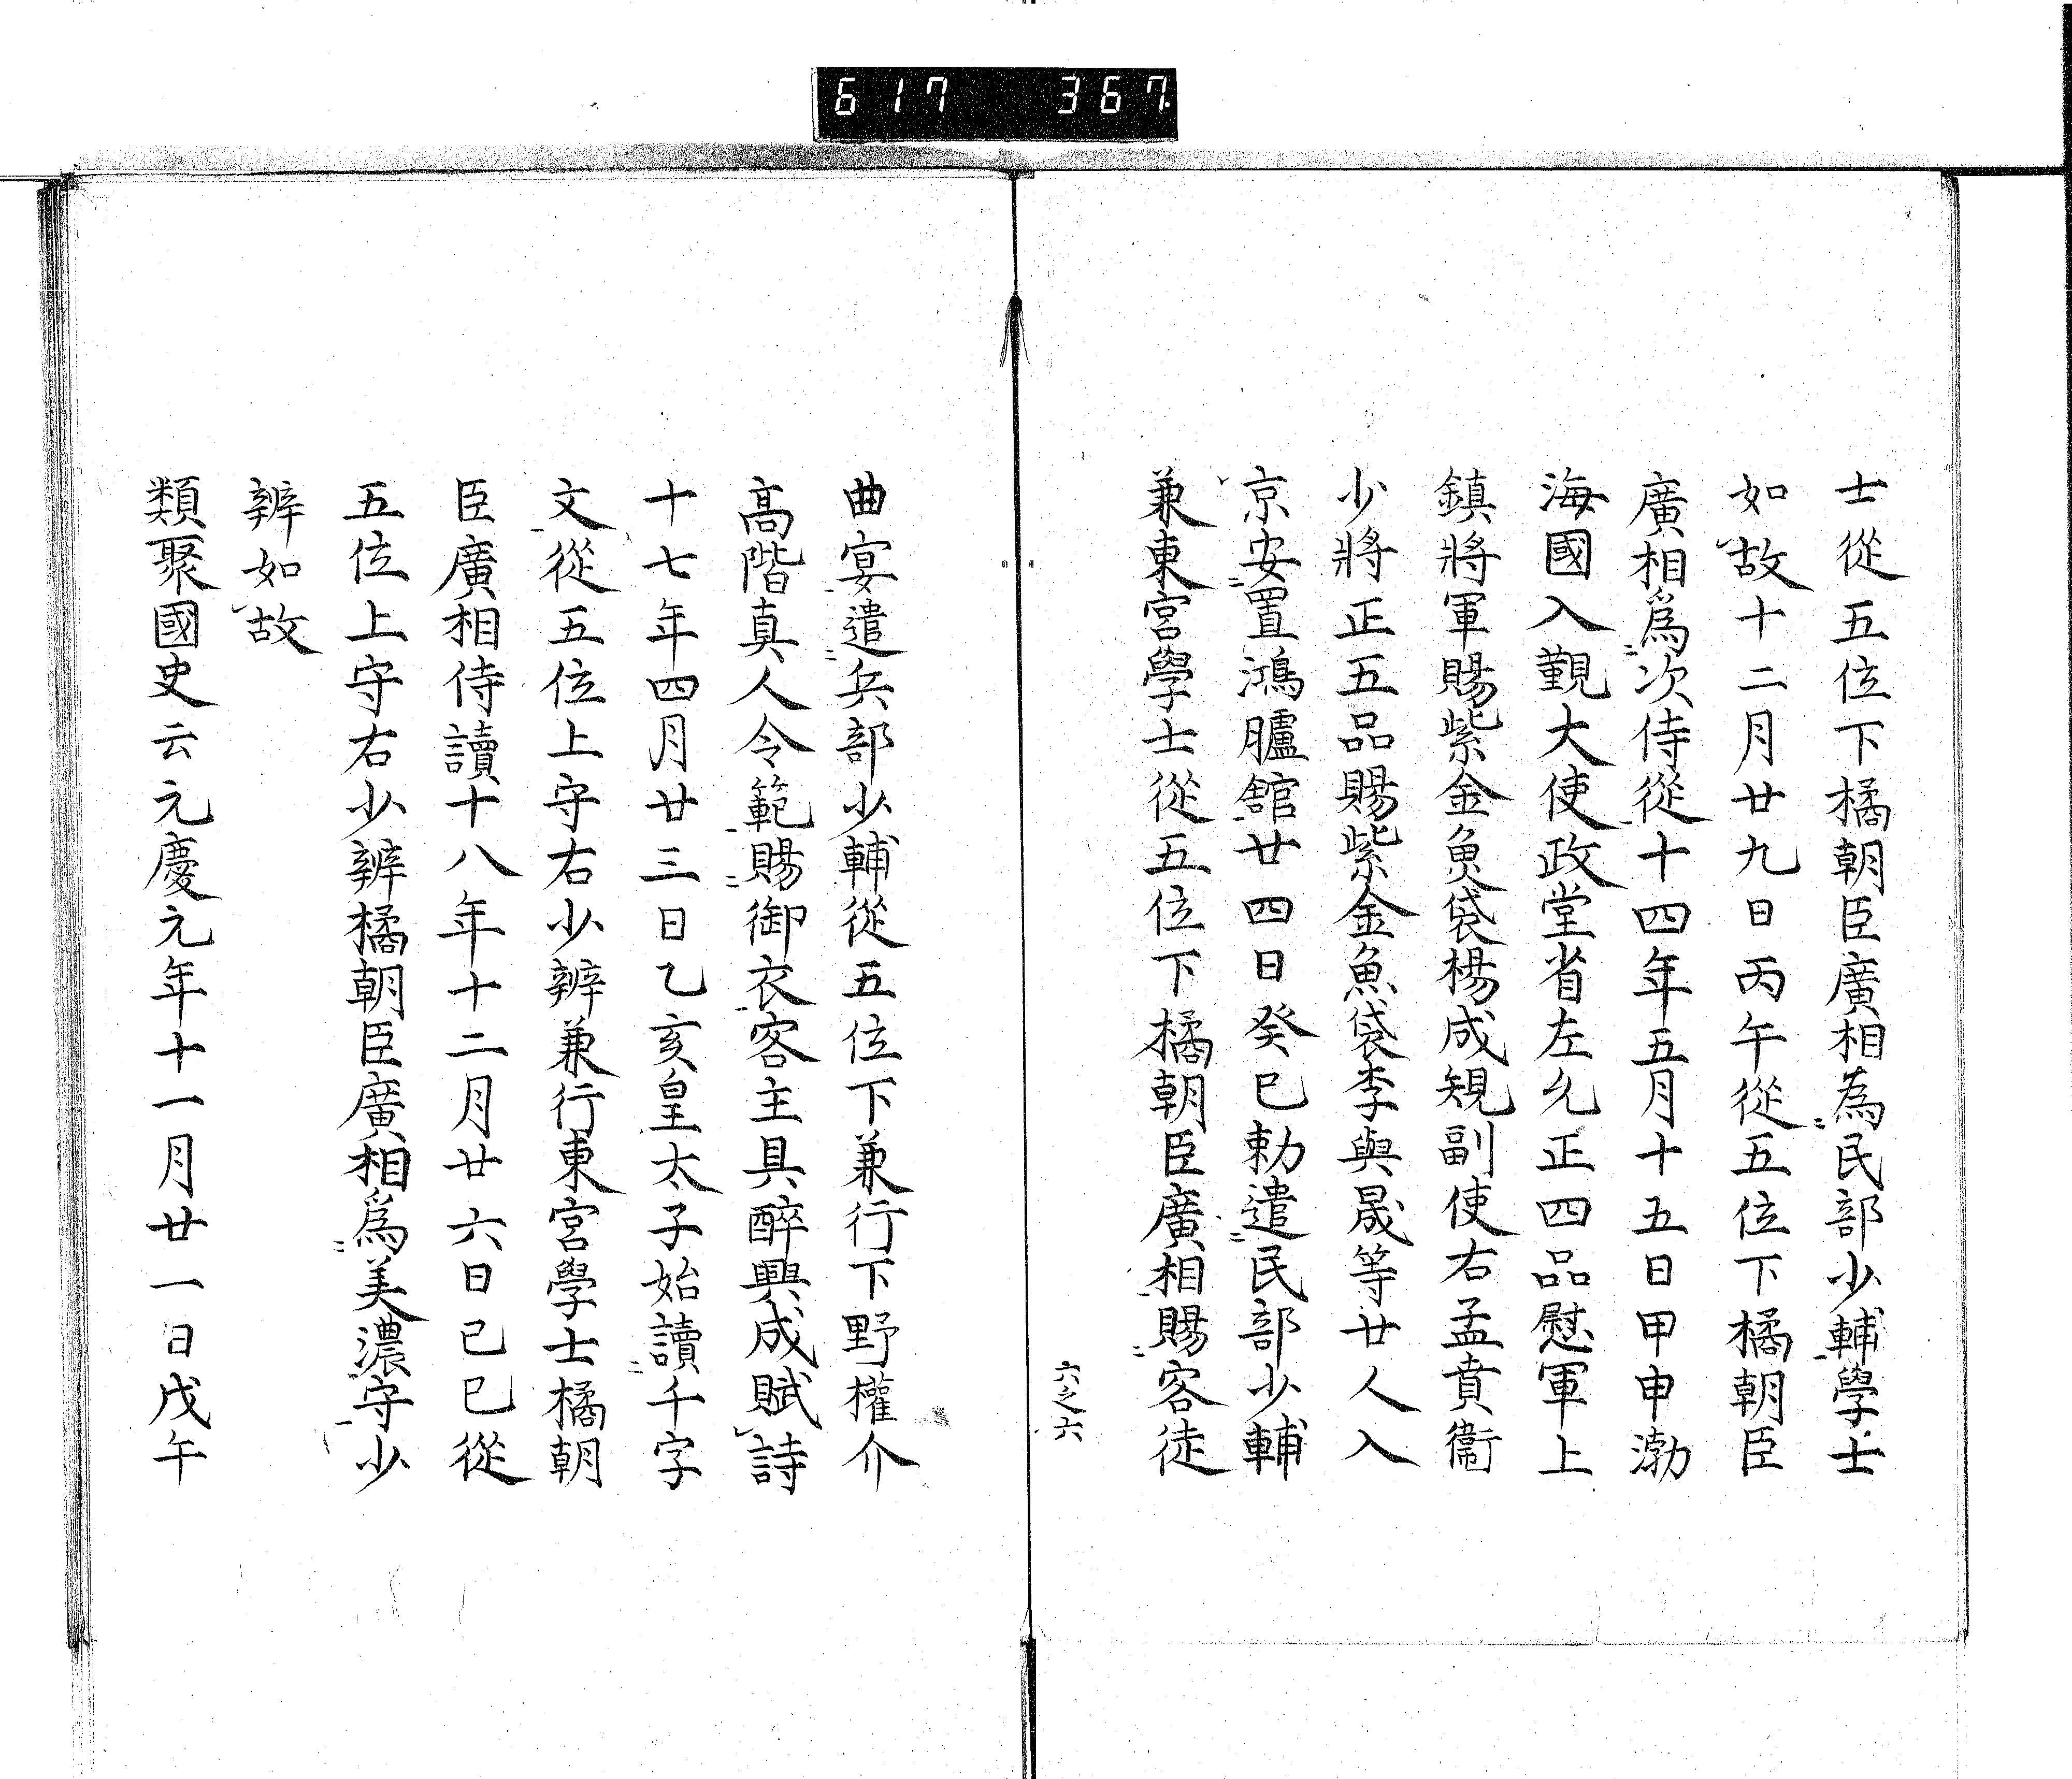 617 367
士從五位下橘朝臣廣相為民部少輔學士
如故十二月廿九日丙午從五位下橘朝臣
廣相爲次侍從十四年五月十五日甲申渤
海國入覲大使政堂省左允正四品慰軍上
鎮將軍賜紫金魚袋楊成規副使右孟賁衞
少將正五品賜紫金魚袋李與晟等廿人入
京安置鴻臚館廿四日癸巳勅遣民部少輔
兼東宮學士從五位下橘朝臣廣相賜客徒
六之六
曲宴遣兵部少輔從五位下兼行下野權介
高階真人令範賜御衣客主具醉興成賦詩
十七年四月廿三日乙亥皇太子始讀千字
文從五位上守右少辨兼行東宮學士橘朝
臣廣相侍讀十八年十二月廿六日己巳從
五位上守右少辨橘朝臣廣相爲美濃守少
辨如故
類聚國史云元慶元年十一月廿一日戊午